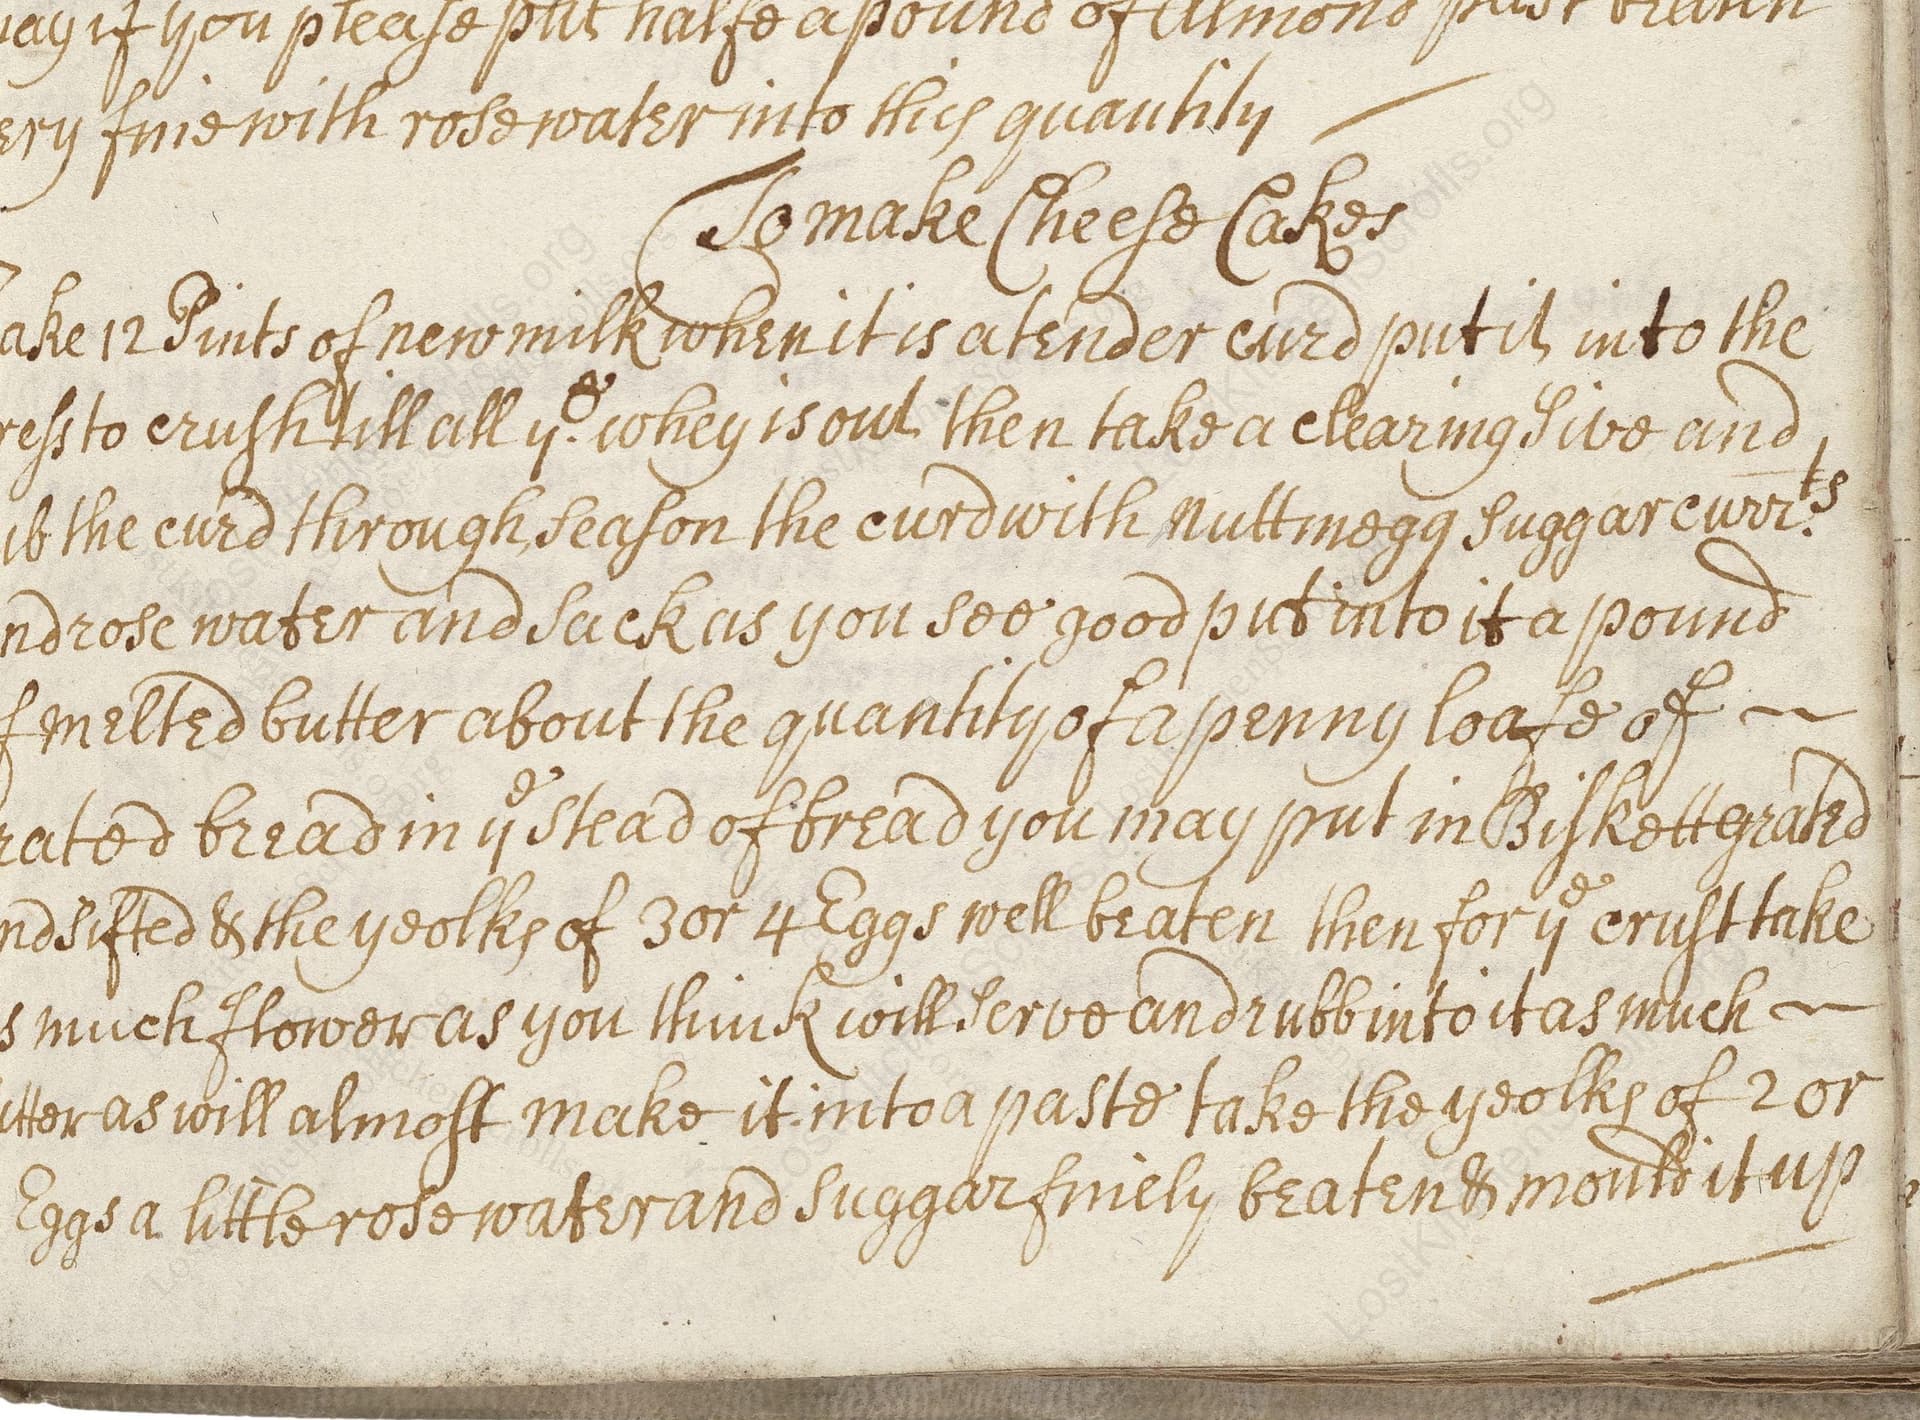 may if you please put halfe a pound of Almond past beaten
ery fine with rose water into this quantity
To make Cheese Cakes
ake 12 Pints of new milk when it is a tender curd put it into the
ress to crush till all yᵉ whey is out then take a clearing Sive and
ub the curd through, season the curd with nuttmegg suggar currᵗˢ
nd rose water and sack as you see good put into it a pound
f melted butter about the quantity of a penny loafe of ~
rated bread in yᵉ stead of bread you may put in Biskett grated
nd sifted & the yeolks of 3 or 4 Eggs well beaten then for yᵉ crust take
s much flower as you think will serve and rubb into it as much ~
utter as will almost make it into a paste take the yeolks of 2 or
Eggs a little rose water and suggar finely beaten & mould it up